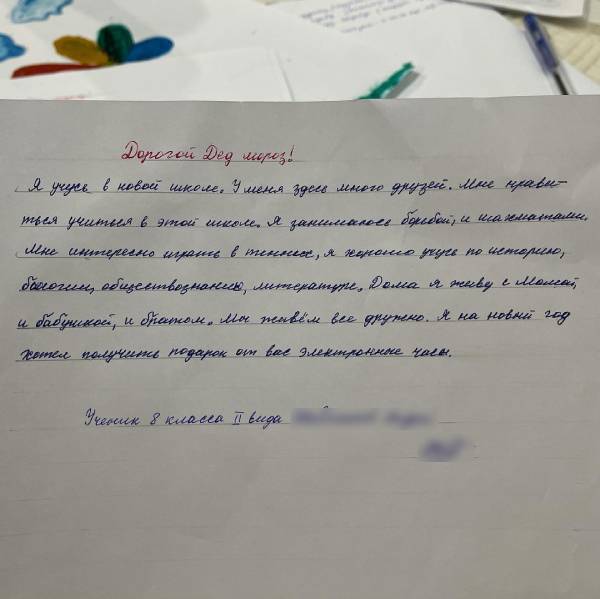 Дорогой Дед мороз!
Я учусь в новой школе. У меня здесь много друзей. Мне нрави-
ться учиться в этой школе. Я занимаюсь борьбой, и шахматами.
Мне интересно играть в теннис, я хорошо учусь по историю,
биологии, обществознанию, литературе. Дома я живу с Мамой,
и бабушкой, и братом. Мы живём все дружно. Я на новый год
хотел получить подарок от вас электронные часы.
Ученик 8 класса II вида